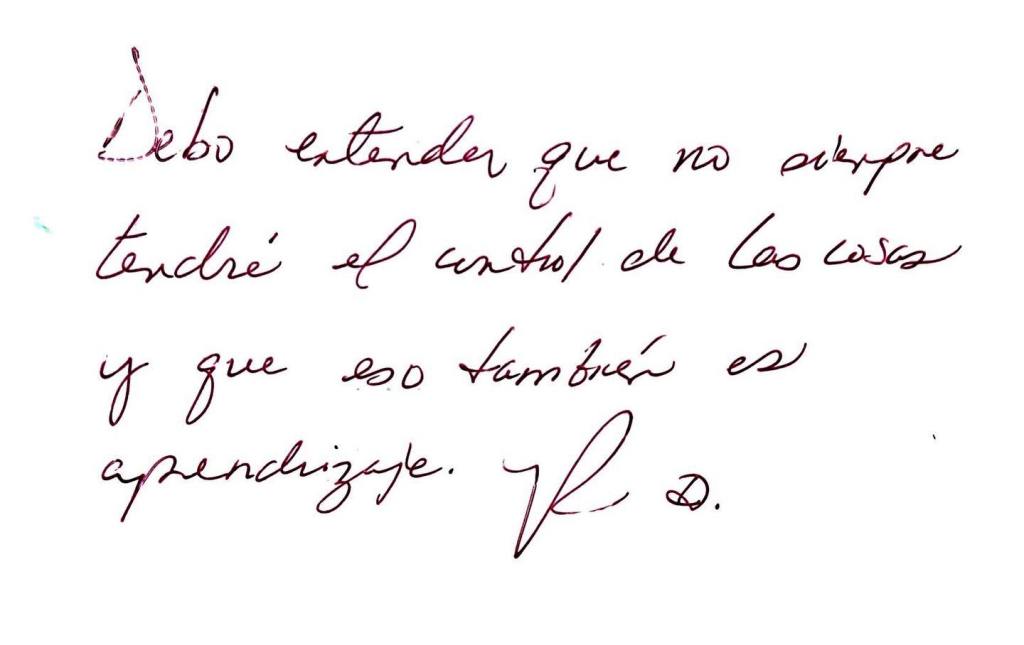 Debo entender que no siempre
tendré el control de las cosas
y que eso también es
aprendizaje. D.